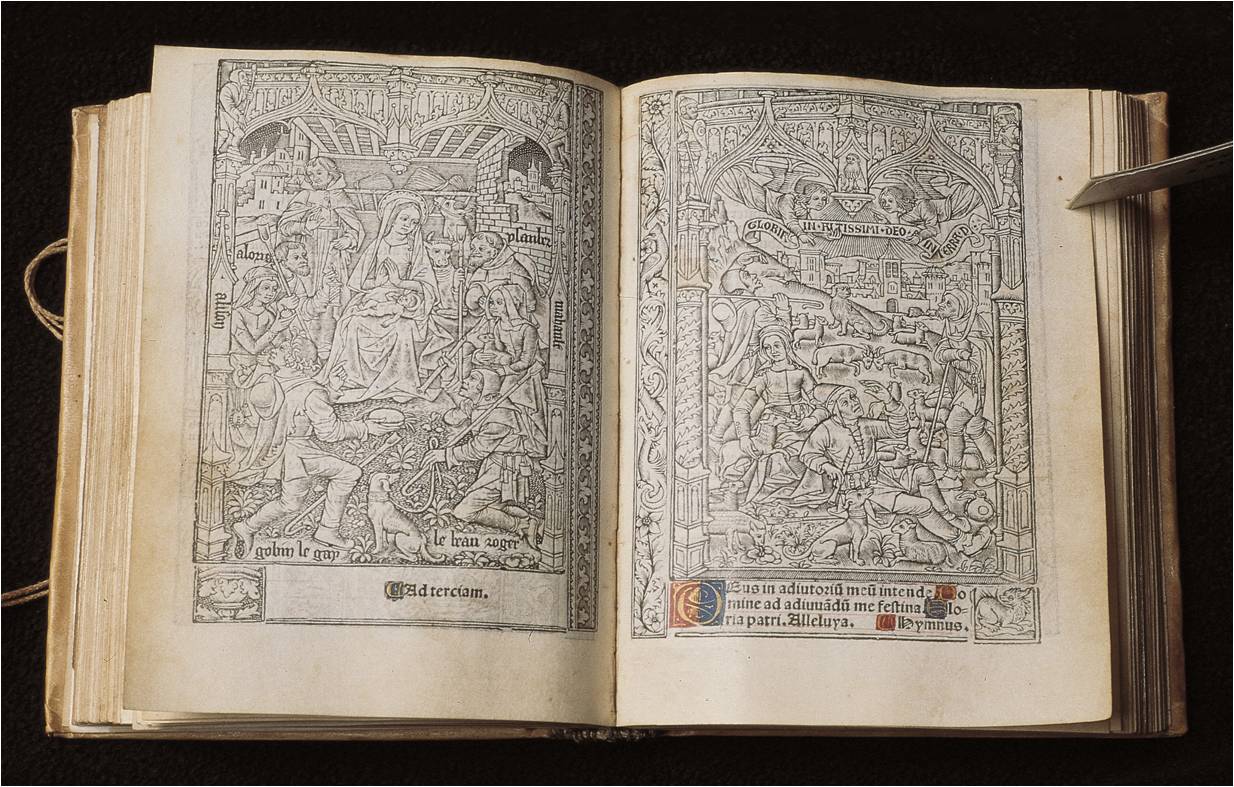 ysanber
aloris
ailison
mahault
gobin le gay
le beau roger
Ad terciam.
GLORIA IN ALTISSIMI DEO IN TERRA
Deus in adiutoriũ meũ intende Do
mine ad adiuuãdũ me festina. Glo-
ria patri. Alleluya. Hymnus.